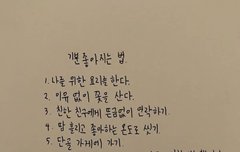 기분 좋아지는 법.
1. 나를 위한 요리를 한다.
2. 이유 없이 꽃을 산다.
3. 친한 친구에게 뜬금없이 연락하기.
4. 땀 흘리고 좋아하는 온도로 씻기.
5. 단골 가게에 가기.